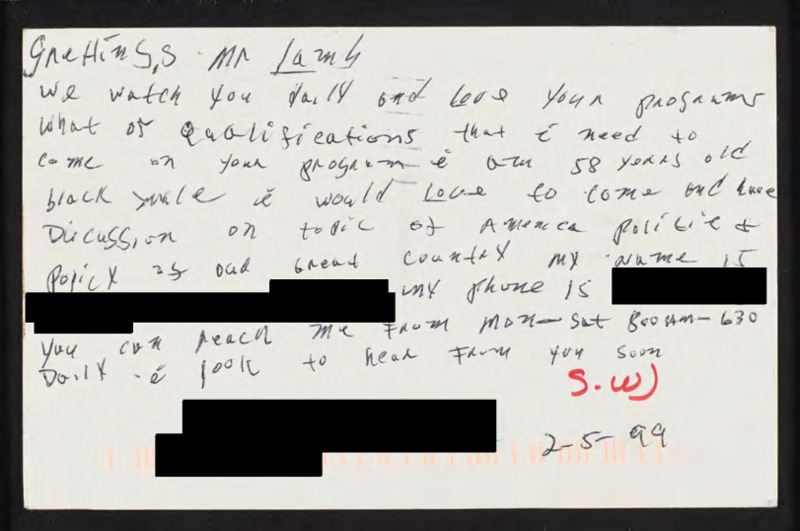 Grettings, Mr Lamb
We watch you daily and love your programs
What of Qualifications that i need to
come on your program i am 58 years old
black male i would Love to come and have
Discussion on topic of America politic &
policy of our great country my name is
my phone is
You can reach me From Mon-Sat 800am-630
Daily i look to hear From you soon
S.W)
2-5-99